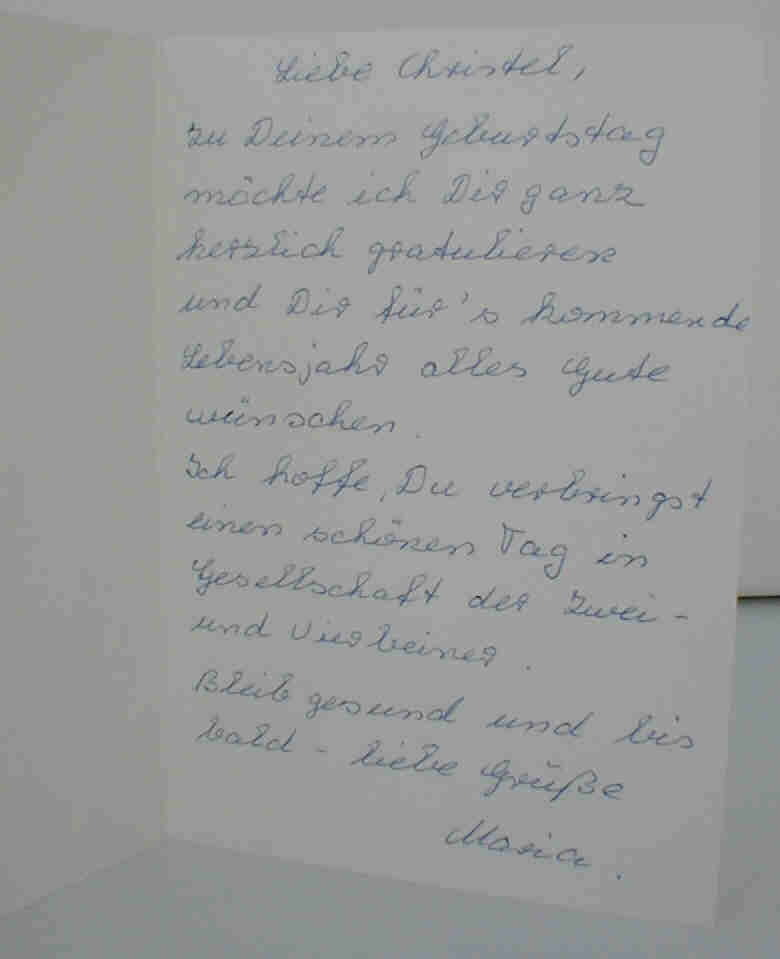 Liebe Christel,
zu Deinem Geburtstag
möchte ich Dir ganz
herzlich gratulieren
und Dir für's kommende
Lebensjahr alles Gute
wünschen.
Ich hoffe, Du verbringst
einen schönen Tag in
Gesellschaft der Zwei-
und Vierbeiner.
Bleib gesund und bis
bald - liebe Grüße
Maria.